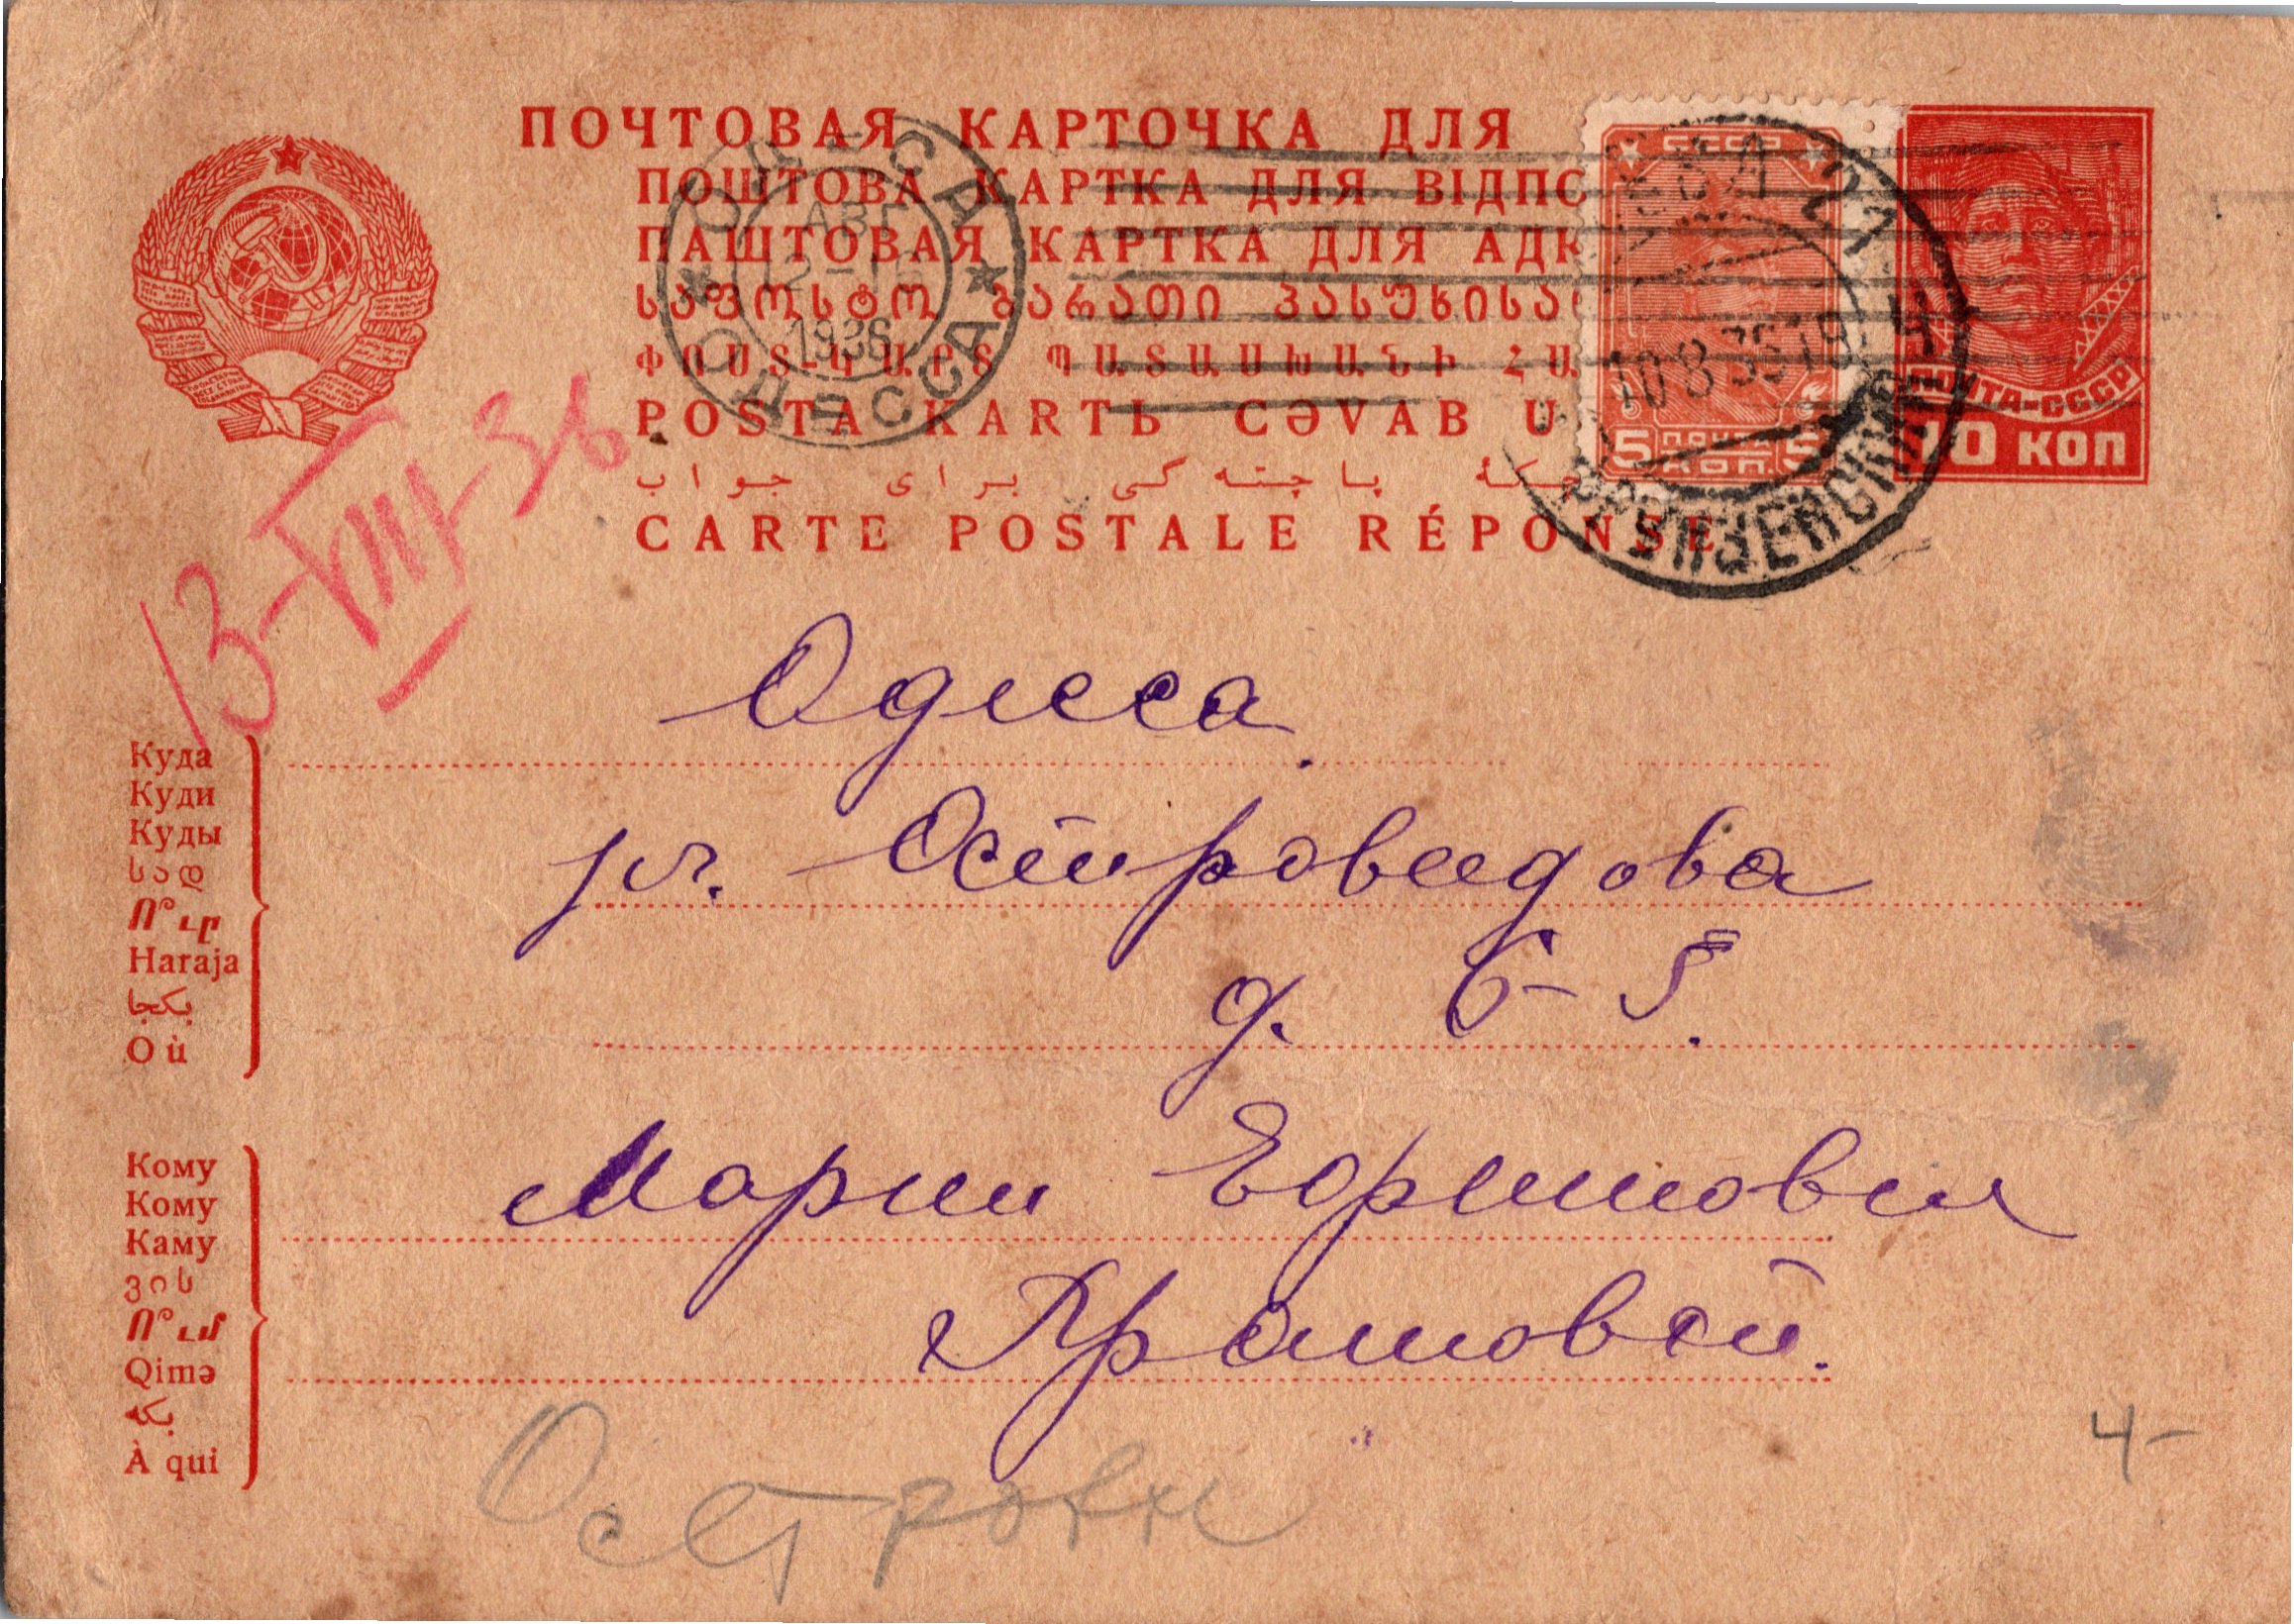 ПОЧТОВАЯ КАРТОЧКА ДЛЯ
ПОШТОВА КАРТКА ДЛЯ ВІДПО
ПАШТОВАЯ КАРТКА ДЛЯ АДК
ᲡᲐᲤᲝᲡᲢᲝ ᲑᲐᲠᲐᲗᲘ ᲞᲐᲡᲣᲮᲘᲡᲐ
ՓՈՍՏ-ՔԱՐՏ ՊԱՏԱՍԽԱՆԻ ՀԱ
POSTA KARTЬ CƏVAB U
پاچته‌گی برای جواب
CARTE POSTALE RÉPONSE
ОДЕСА
АВГ
12-16
1936
ОДЕССА
СССР
5 ПОЧТА 5
КОП.
10 8 36 19
Ч
ПОЧТА-СССР
10 КОП
13-VIII-36
Одесса.
ул. Островидова
д. 6-5.
Марии Ефимовне
Храмовой.
Куда
Куди
Куды
სად
Ո՞ւր
Haraja
بكجا
Où
Кому
Кому
Каму
ვის
Ո՞ւմ
Qimə
بكه
À qui
4-